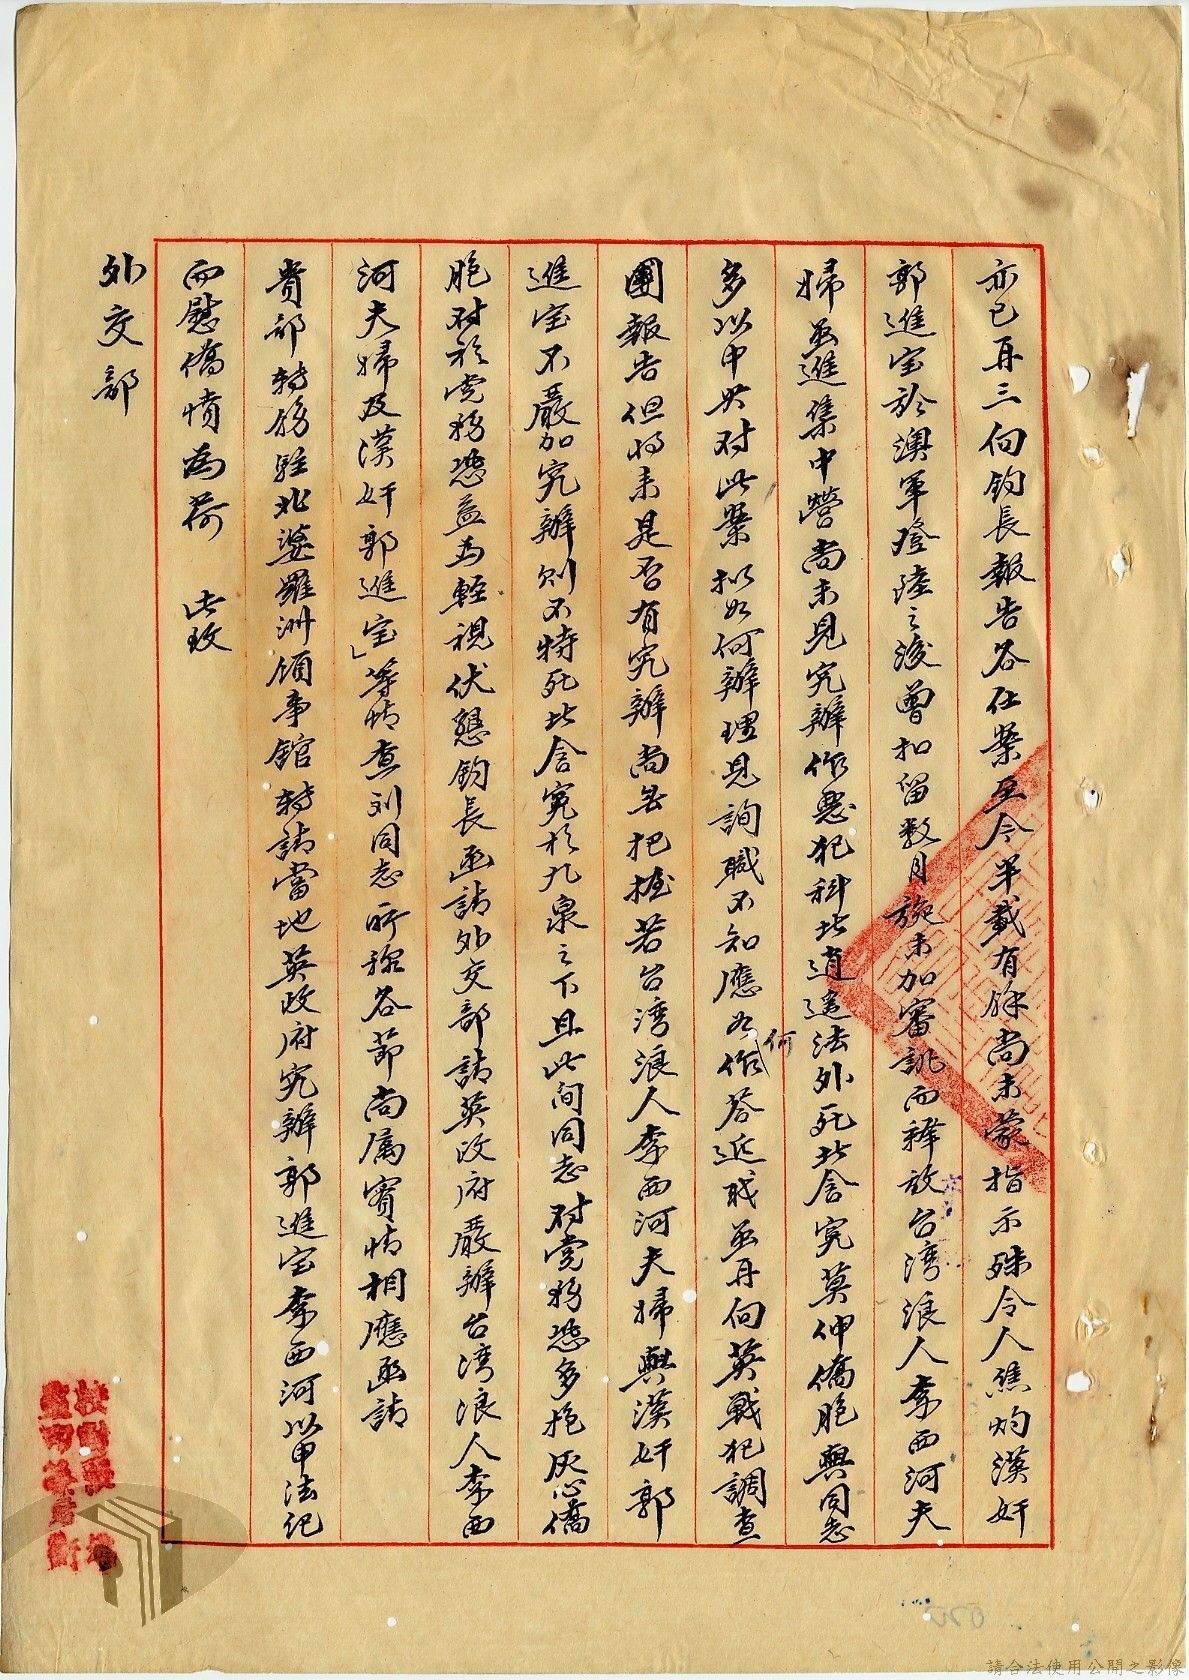 亦已再三向鈞長報告各在案至今半載有餘尚未蒙指示殊令人焦灼漢奸
郭進宝於澳軍登陸之後曾扣留数月旋未加審訊而釋放台湾浪人李西河夫
婦虽進集中營尚未見究辦作惡犯科者逍遥法外死者含冤莫伸僑胞與同志
多以中央对此案拟如何辦理見詢職不知應如何作答近职虽再向英戰犯調查
團報告但将来是否有究辦尚無把握若台湾浪人李西河夫婦與漢奸郭
進宝不嚴加究辦则不特死者含冤於九泉之下且此间同志对党務恐多抱灰心僑
胞对於党務恐益为輕視伏懇鈞長函請外交部請英政府嚴辦台湾浪人李西
河夫婦及漢奸郭進宝」等情查刘同志所稱各節尚属實情相應函請
貴部轉飭駐北婆羅洲領事館轉請當地英政府究辦郭進宝李西河以申法纪
而慰僑憤為荷 此致
外交部
請合法使用公開之影像